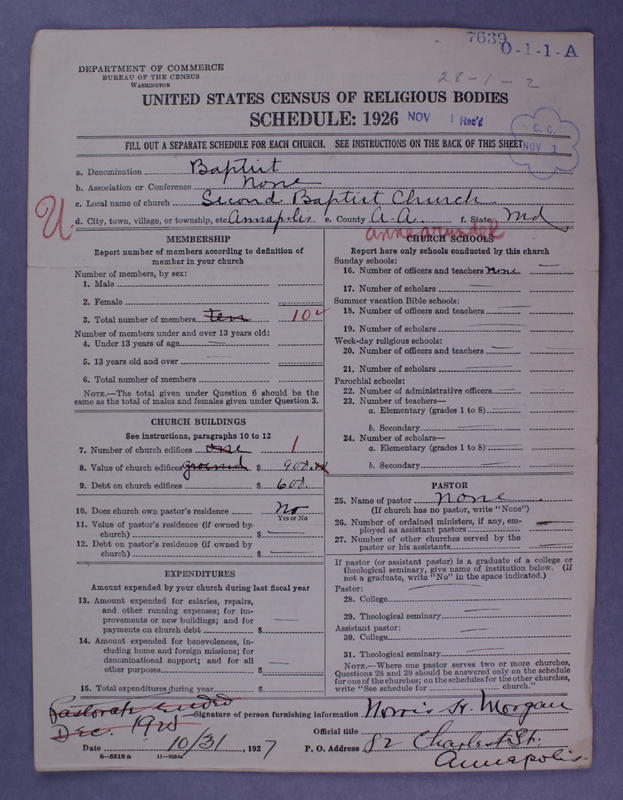 7639
0-1-1-A
28-1-2
DEPARTMENT OF COMMERCE
BUREAU OF THE CENSUS
WASHINGTON
UNITED STATES CENSUS OF RELIGIOUS BODIES
SCHEDULE: 1926 NOV 1 Rec'd
C. C.
NOV 1
FILL OUT A SEPARATE SCHEDULE FOR EACH CHURCH. SEE INSTRUCTIONS ON THE BACK OF THIS SHEET
a. Denomination Baptist
b. Association or Conference None
c. Local name of church Second Baptist Church
U
d. City, town, village, or township, etc. Annapolis e. County A.A. f. State Md
anne arundel
MEMBERSHIP
Report number of members according to definition of
member in your church
Number of members, by sex:
1. Male
2. Female
3. Total number of members ten 10
Number of members under and over 13 years old:
4. Under 13 years of age
5. 13 years old and over
6. Total number of members
NOTE.—The total given under Question 6 should be the
same as the total of males and females given under Question 3.
CHURCH BUILDINGS
See instructions, paragraphs 10 to 12
7. Number of church edifices one 1
8. Value of church edifices ground $ 900.
9. Debt on church edifices $ 600.
10. Does church own pastor's residence No
Yes or No
11. Value of pastor's residence (if owned by
church) $
12. Debt on pastor's residence (if owned by
church) $
EXPENDITURES
Amount expended by your church during last fiscal year
13. Amount expended for salaries, repairs,
and other running expenses; for im-
provements or new buildings; and for
payments on church debt $
14. Amount expended for benevolences, in-
cluding home and foreign missions; for
denominational support; and for all
other purposes $
15. Total expenditures during year $
CHURCH SCHOOLS
Report here only schools conducted by this church
Sunday schools:
16. Number of officers and teachers none
17. Number of scholars
Summer vacation Bible schools:
18. Number of officers and teachers
19. Number of scholars
Week-day religious schools:
20. Number of officers and teachers
21. Number of scholars
Parochial schools:
22. Number of administrative officers
23. Number of teachers—
a. Elementary (grades 1 to 8)
b. Secondary
24. Number of scholars—
a. Elementary (grades 1 to 8)
b. Secondary
PASTOR
25. Name of pastor None
(If church has no pastor, write "None")
26. Number of ordained ministers, if any, em-
ployed as assistant pastors
27. Number of other churches served by the
pastor or his assistants
If pastor (or assistant pastor) is a graduate of a college or
theological seminary, give name of institution below. (If
not a graduate, write "No" in the space indicated.)
Pastor:
28. College
29. Theological seminary
Assistant pastor:
30. College
31. Theological seminary
NOTE.—Where one pastor serves two or more churches,
Questions 28 and 29 should be answered only on the schedule
for one of the churches; on the schedules for the other churches,
write "See schedule for church."
Pastorate ended
Dec. 1925
Signature of person furnishing information Norris H. Morgan
Official title
Date 10/31, 1927 P. O. Address 82 Charles St.
Annapolis.